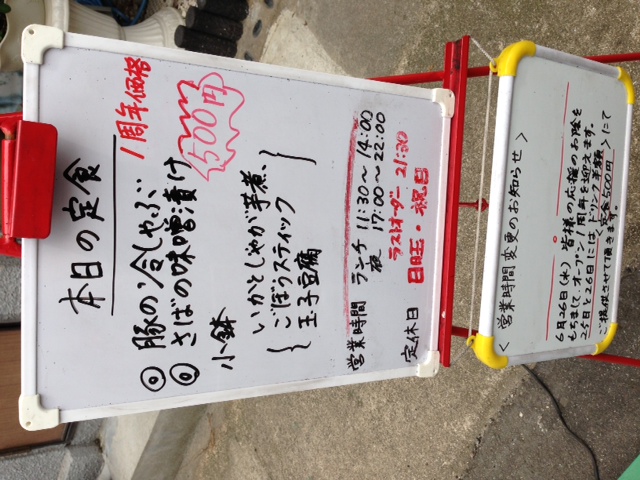 本日の定食
1周年価格
◎豚の冷しゃぶ
◎さばの味噌漬け
500円
小鉢
いかとじゃが芋煮、
ごぼうスティック
玉子豆腐
営業時間 ランチ 11:30〜14:00
夜 17:00〜22:00
ラストオーダー 21:30
定休日 日曜・祝日
＜営業時間変更のお知らせ＞
6月26日(水)皆様の応援のお陰を
もちまして、オープン1周年を迎えます。
25日と26日には ドリンク半額
定食500円 にて
ご提供させて頂きます。